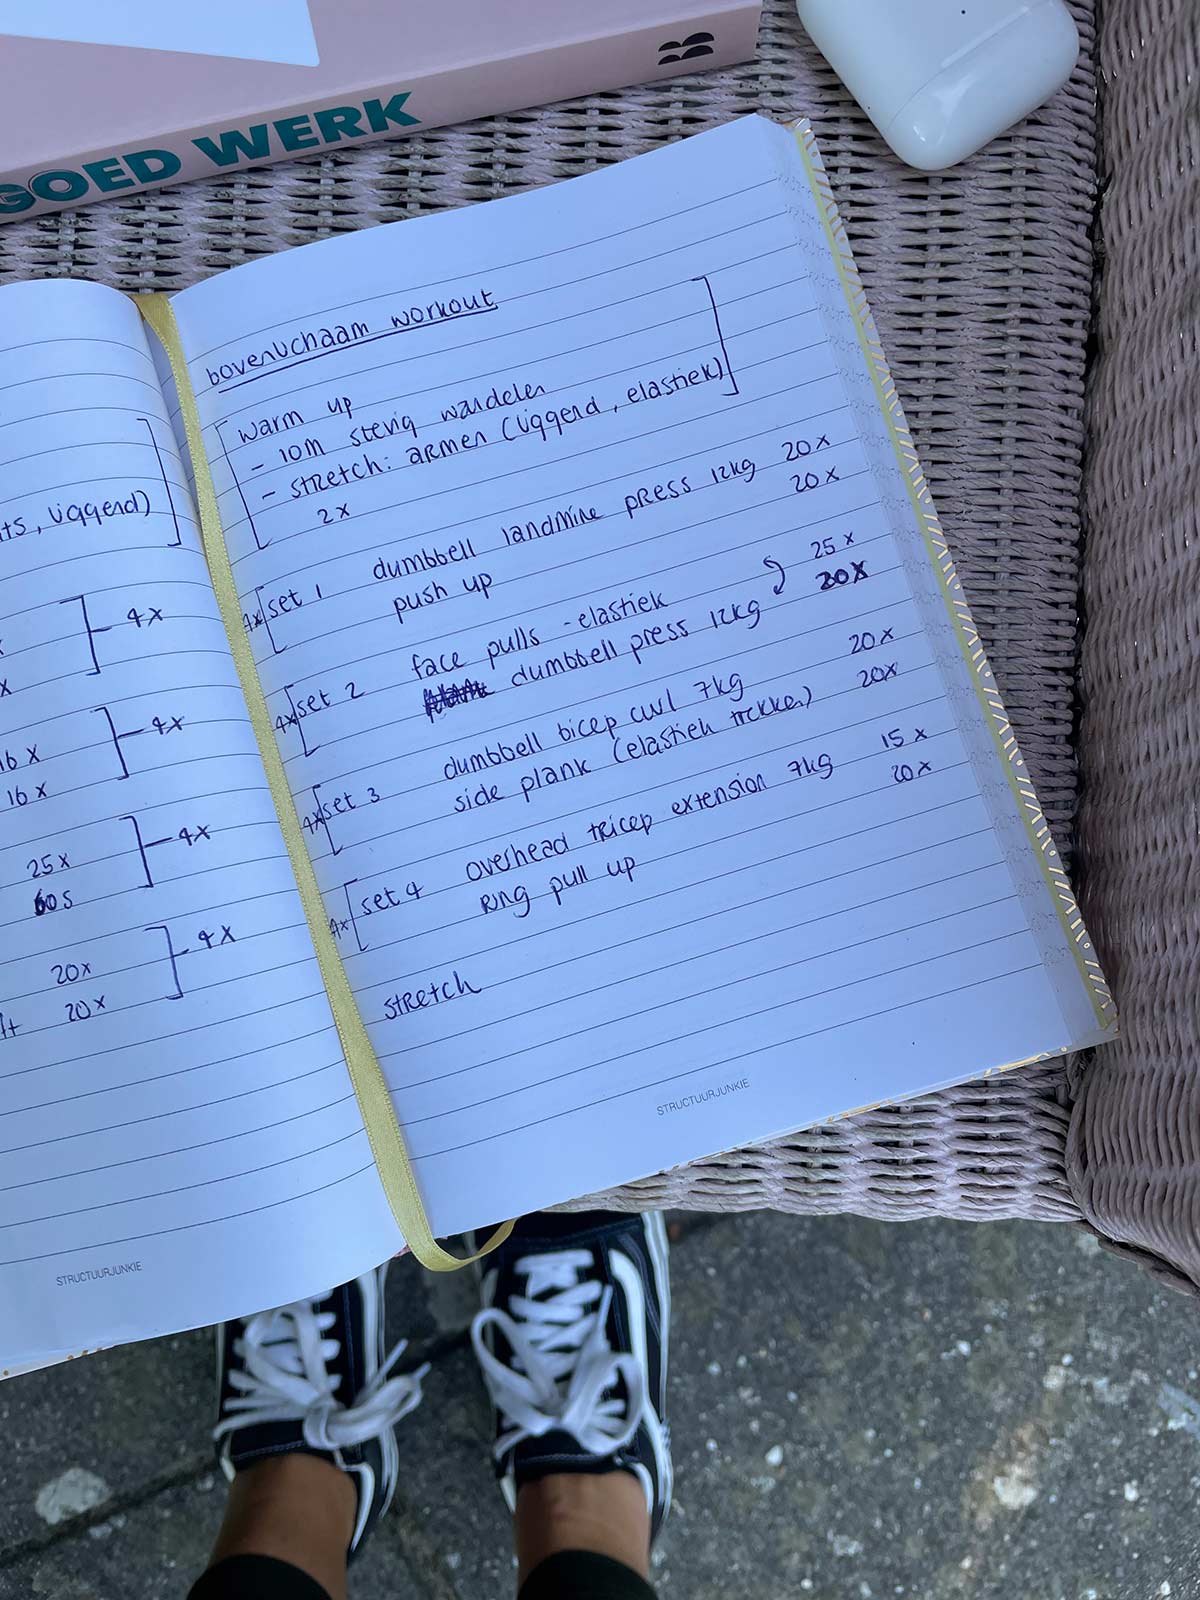 GOED WERK
bovenlichaam workout
warm up
- 10m stevig wandelen
- stretch: armen (liggend, elastiek)
2x
4x set 1 dumbbell landmine press 12kg 20x
push up 20x
4x set 2 face pulls - elastiek 25x
dumbbell press 12kg 20x
4x set 3 dumbbell bicep curl 7kg 20x
side plank (elastiek trekken) 20x
4x set 4 overhead tricep extension 7kg 15x
ring pull up 20x
stretch
STRUCTUURJUNKIE
liggend)
4x
x
x
16x
4x
16x
4x
25x
60s
4x
20x
20x
STRUCTUURJUNKIE